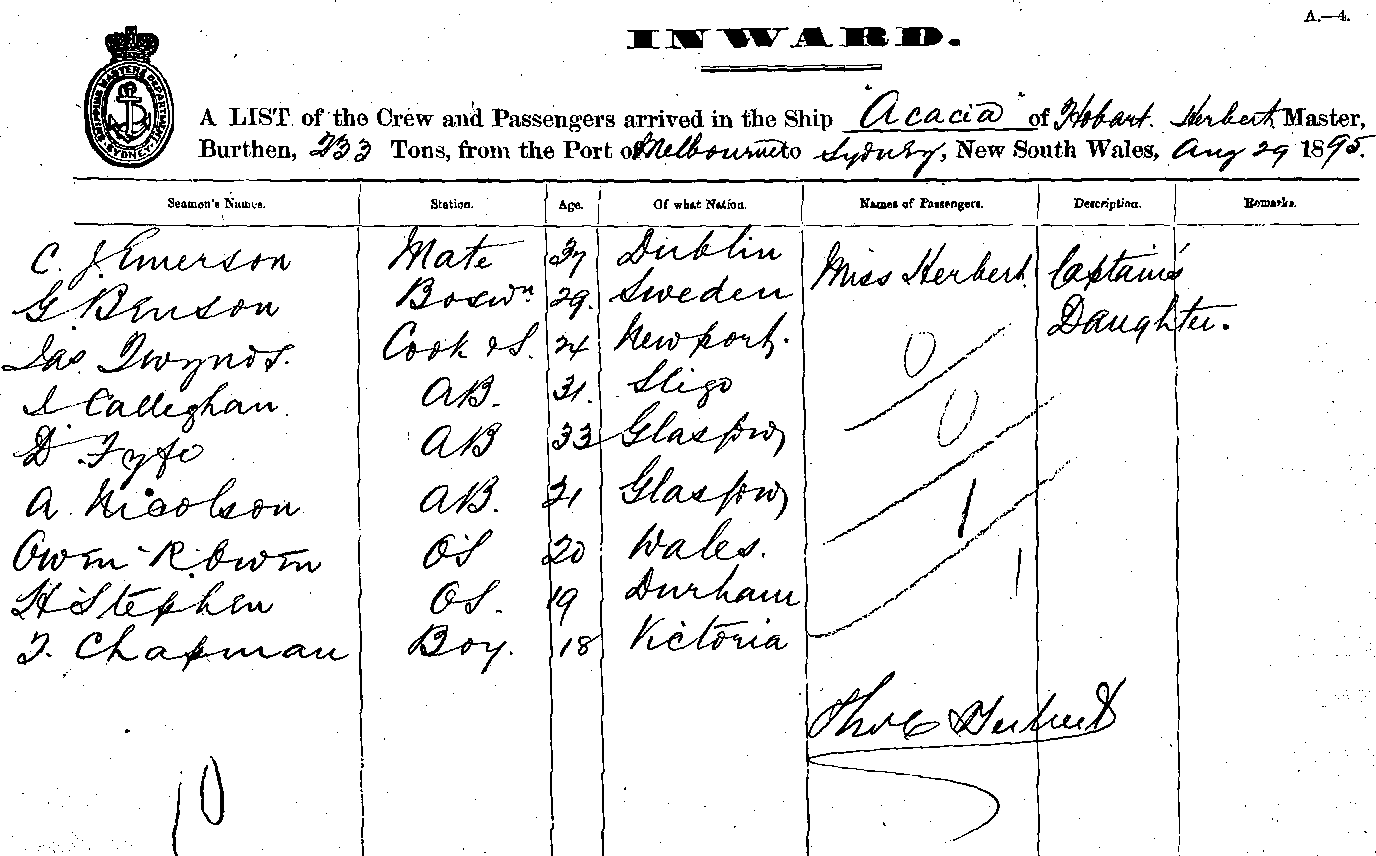 A.—4.
INWARD.
A LIST of the Crew and Passengers arrived in the Ship "Acacia" of Hobart. Herbert Master,
Burthen, 233 Tons, from the Port of Melbourne to Sydney, New South Wales, Aug 29 1895.
Seamen's Names. Station. Age. Of what Nation. Names of Passengers. Description. Remarks.
C. J. Emerson Mate 37 Dublin Miss Herbert. Captain's
G. Benson Boswn 29. Sweden Daughter.
Jas. Cook & S. 24 Newport. 0
Calleghan. AB. 31. Sligo 0
D. Fyfe AB 33 Glasgow
A. Nicolson AB. 21 Glasgow 1
Owen R. Owen OS 20 Wales. 1
H Stephen OS. 19 Durham
T. Chapman Boy. 18 Victoria
Thos C Herbert
10
SYDNEY